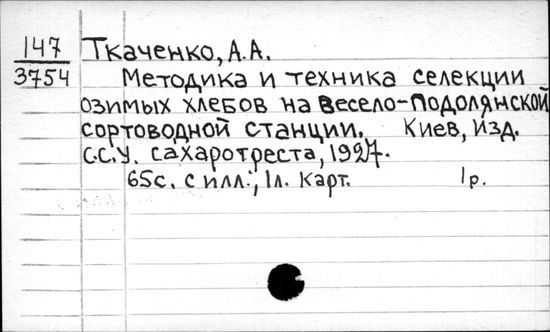 147
3754
Ткаченко, А.А.
Методика и техника селекции
озимых хлебов на Весело-Подолянской
сортоводной станции. Киев, Изд.
С.С.У. Сахаротреста, 1927.
65с. с илл., 1л. карт. 1р.